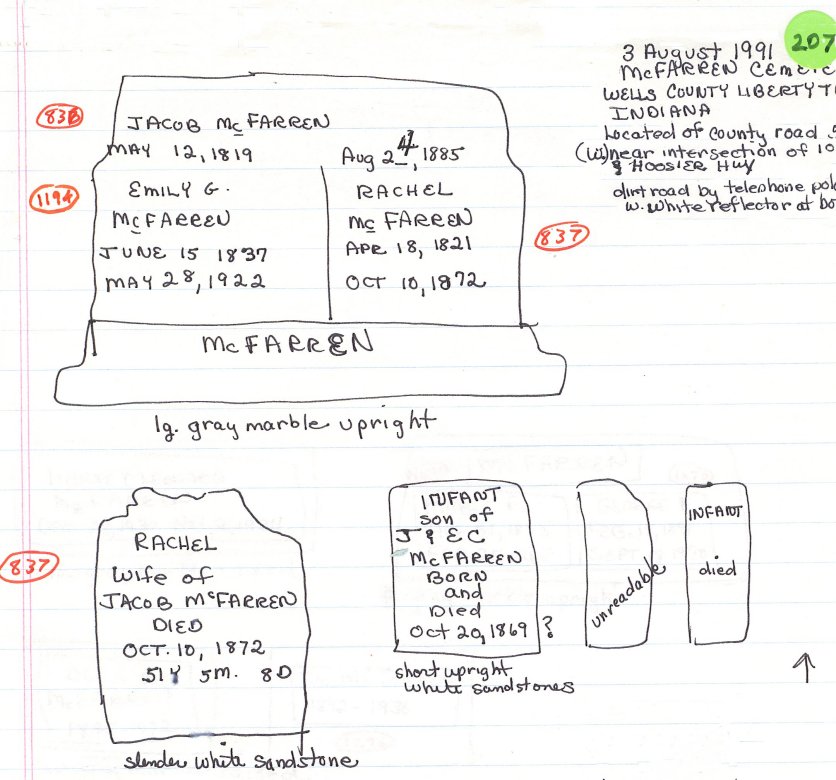 207
3 August 1991
McFARREN CEMETE
WELLS COUNTY LIBERTY T
INDIANA
Located of County road
near intersection of 10
& HOOSIER HWY
dirt road by telephone pol
w. white reflector at bo
838
JACOB McFARREN
MAY 12, 1819 Aug 24, 1885
1194
EMILY G.
McFARREN
JUNE 15 1837
MAY 28, 1922
RACHEL
McFARREN
APR 18, 1821
OCT 10, 1872
837
McFARREN
lg. gray marble upright
837
RACHEL
Wife of
JACOB McFARREN
DIED
OCT. 10, 1872
51Y 5M. 8D
slender white sandstone
INFANT
son of
J & E C
McFARREN
BORN
and
Died
Oct 20, 1869 ?
short upright
white sandstones
unreadable
INFANT
died